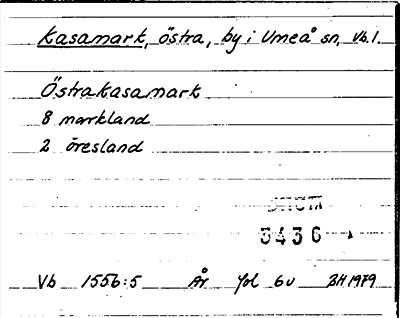 Kasamark, östra, by i Umeå sn, Vb.l.
Östrakasamark
8 markland
2 öresland
3436
Vb 1556:5 År fol 6v BH 1979